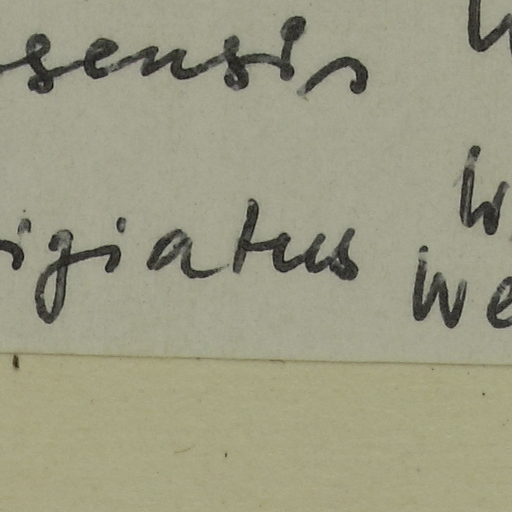 sensis
igiatus We